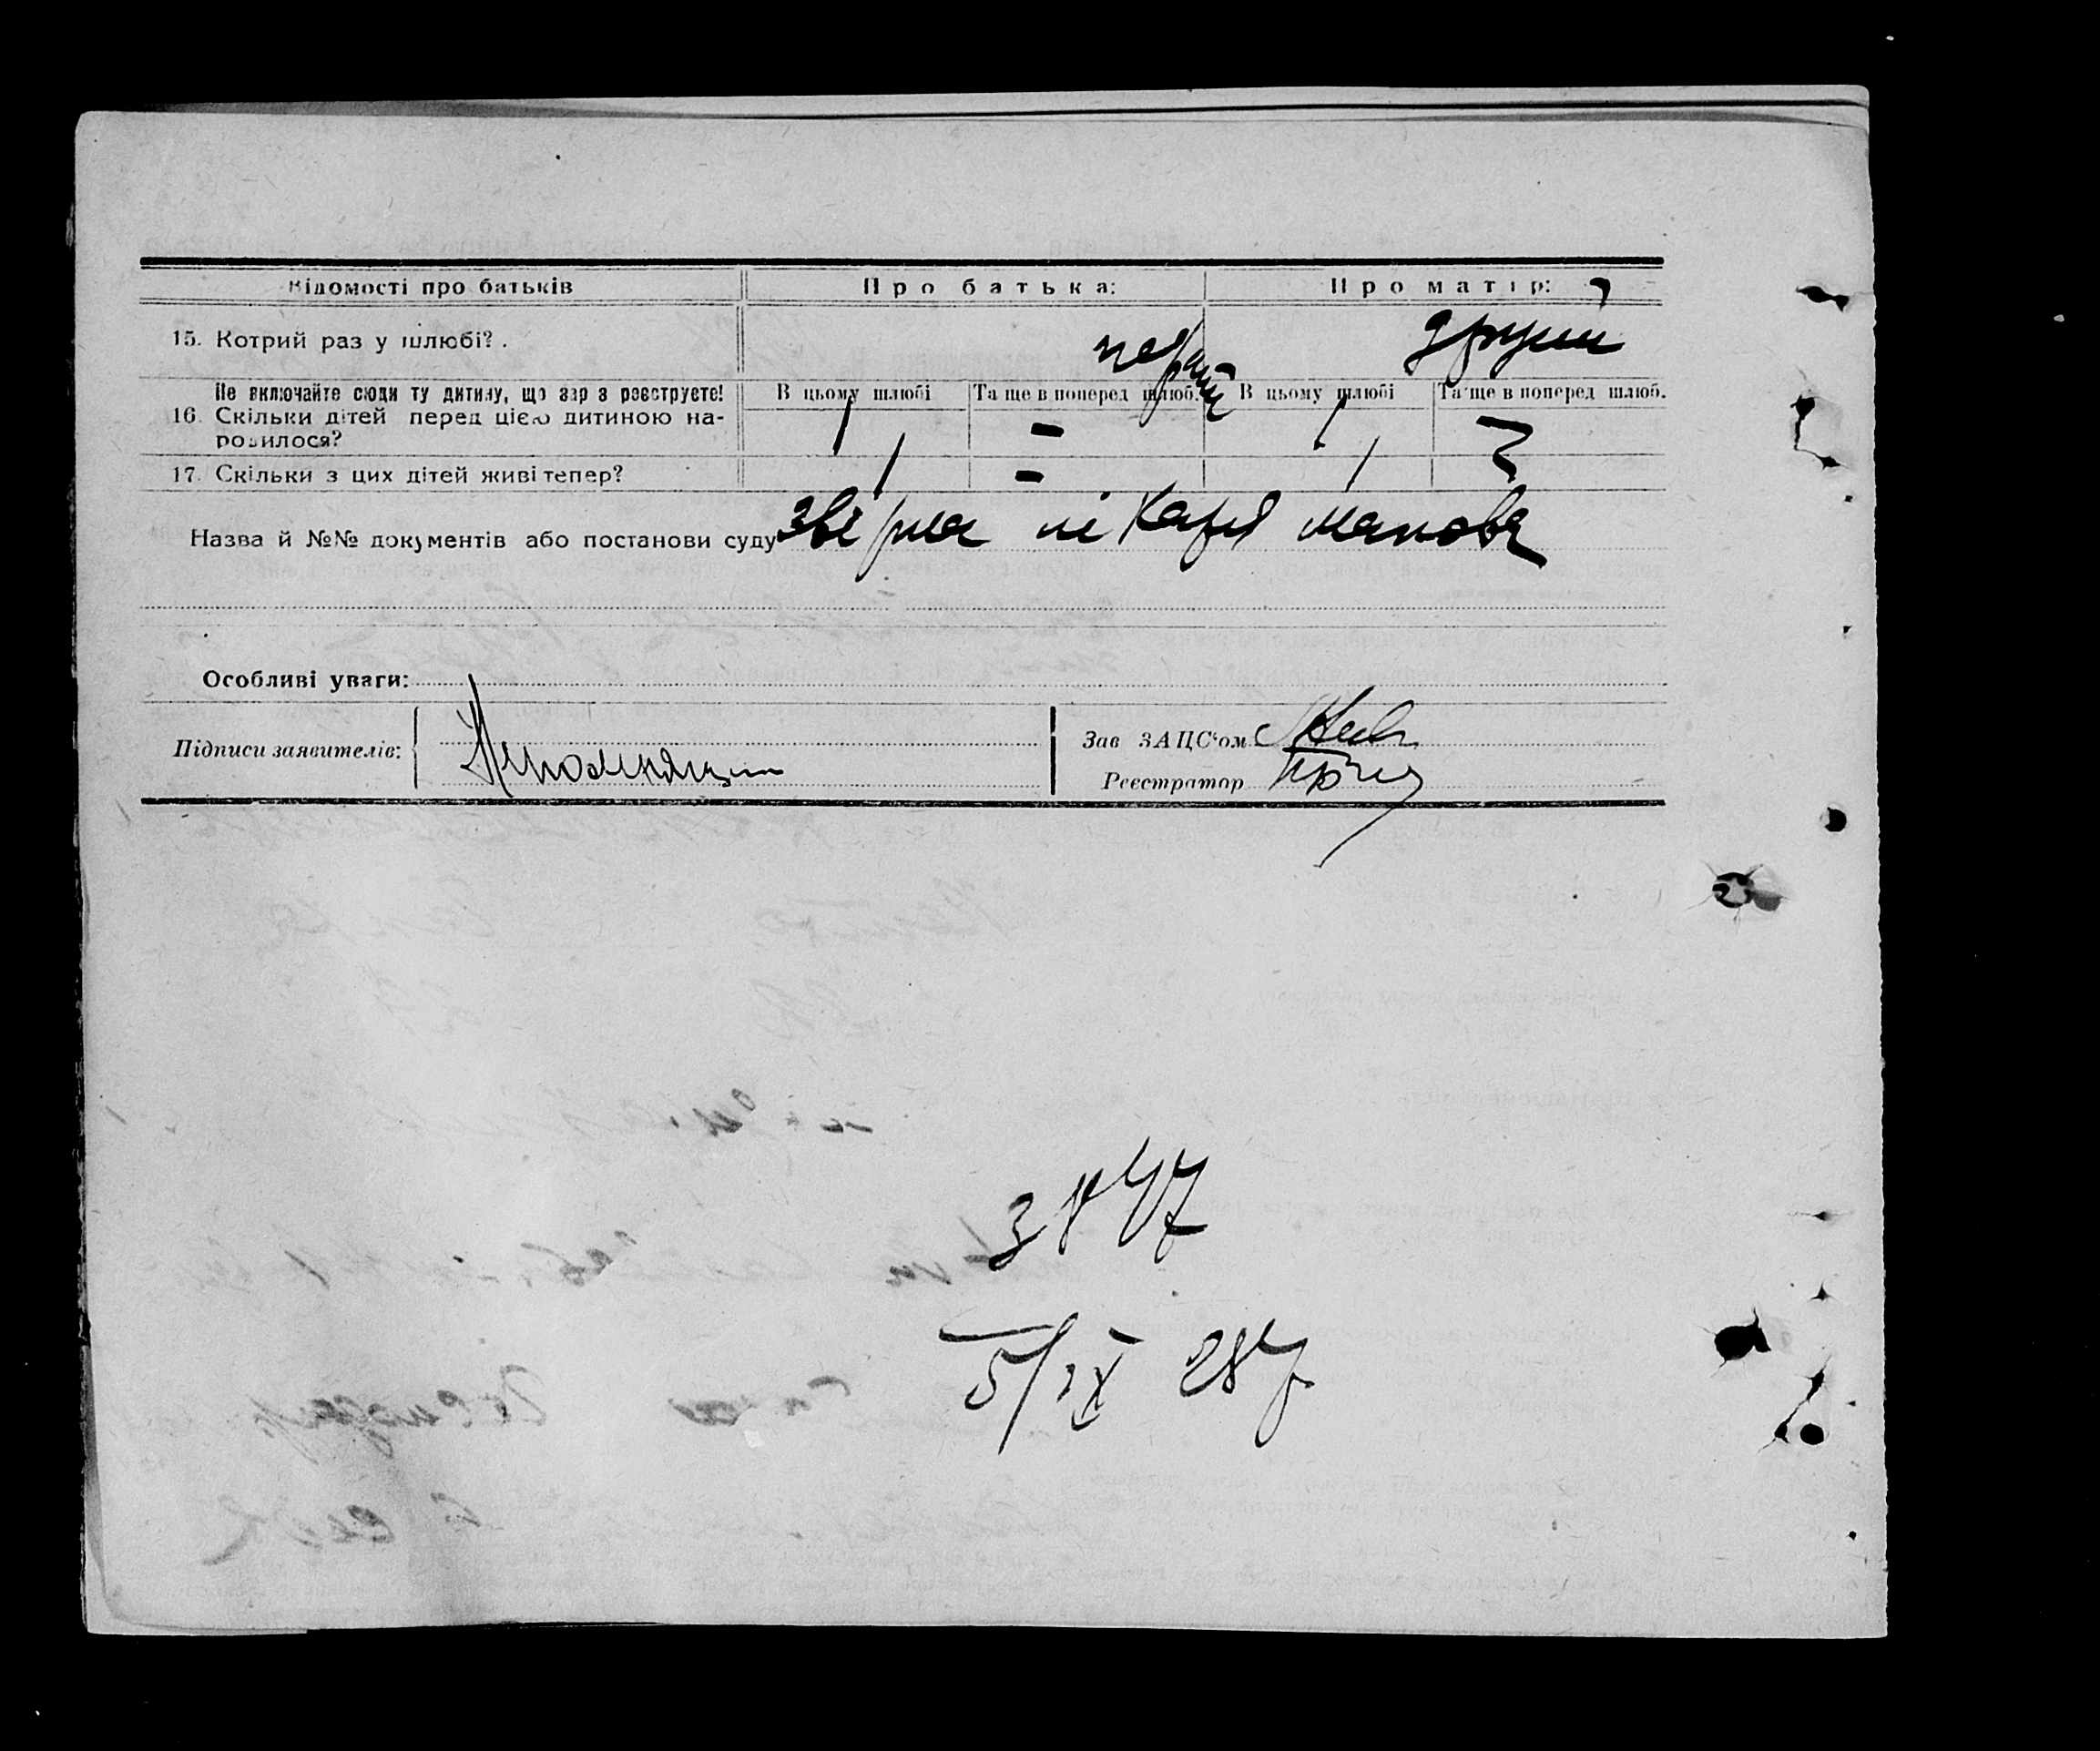 Відомості про батьків
Про батька:
Про матір:
15. Котрий раз у шлюбі?.
перший
другий
Не включайте сюди ту дитину, що зараз реєструєте!
В цьому шлюбі
Та ще в поперед шлюб.
В цьому шлюбі
Та ще в поперед шлюб.
16. Скільки дітей перед цією дитиною на-
родилося?
1
-
1
17. Скільки з цих дітей живі тепер?
1
-
1
Назва й №№ документів або постанови суду
Особливі уваги:
Підписи заявителів:
Зав ЗАЦС‘ом
Реєстратор
3847
5/IX 28